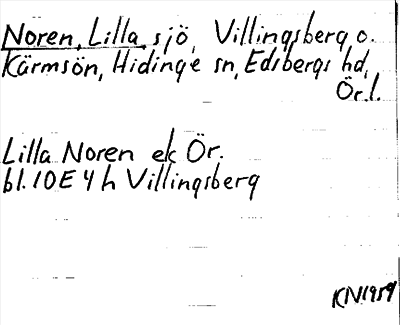 Noren, Lilla, sjö, Villingsberg o.
Kärmsön, Hidinge sn, Edsbergs hd,
Ör.l.
Lilla Noren ek Ör.
bl. 10E 4 h Villingsberg
KN1959